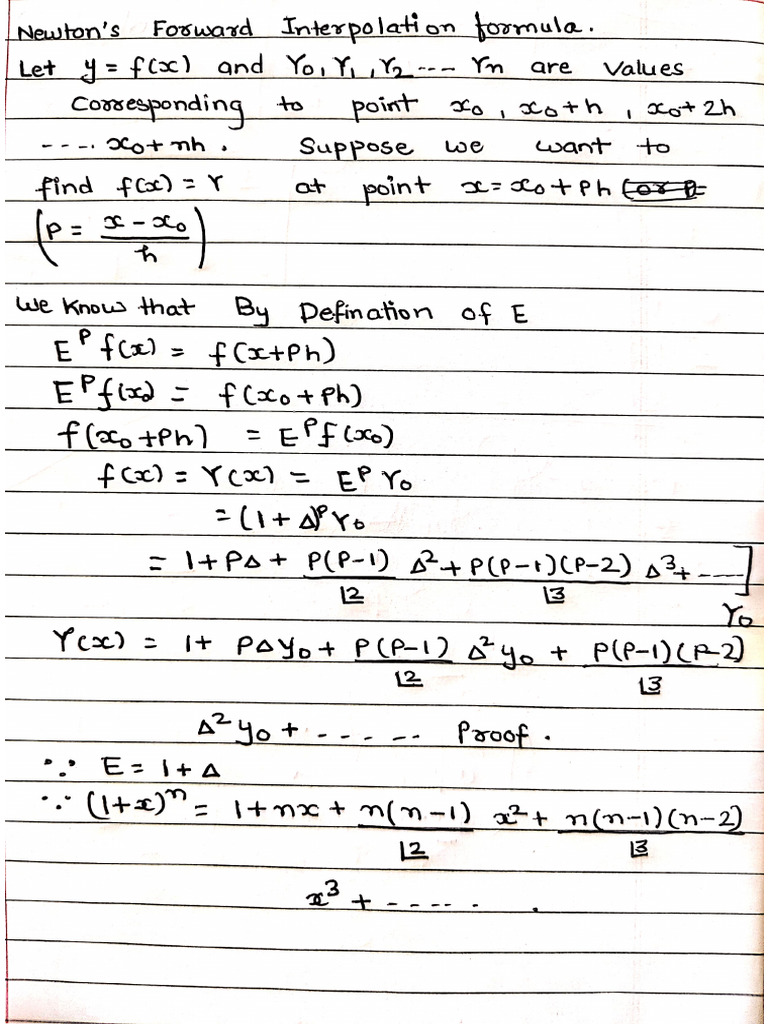 Newton's Forward Interpolation formula.
Let y = f(x) and Y₀, Y₁, Y₂ --- Yn are values
Corresponding to point x₀, x₀+h, x₀+2h
---. x₀+nh. Suppose we want to
find f(x) = Y at point x = x₀+Ph (or P
(P = (x - x₀)/h)
We Know that By Defination of E
E^P f(x) = f(x+Ph)
E^P f(x₀) = f(x₀+Ph)
f(x₀+Ph) = E^P f(x₀)
f(x) = Y(x) = E^P Y₀
= (1+Δ)^P Y₀
= 1+PΔ + P(P-1)/⌊2 Δ² + P(P-1)(P-2)/⌊3 Δ³+ ---]
Y₀
Y(x) = 1+ PΔy₀ + P(P-1)/⌊2 Δ²y₀ + P(P-1)(P-2)/⌊3
Δ²y₀ + ------ Proof.
∵ E = 1+Δ
∵ (1+x)ⁿ = 1+nx + n(n-1)/⌊2 x² + n(n-1)(n-2)/⌊3
x³ + -----.